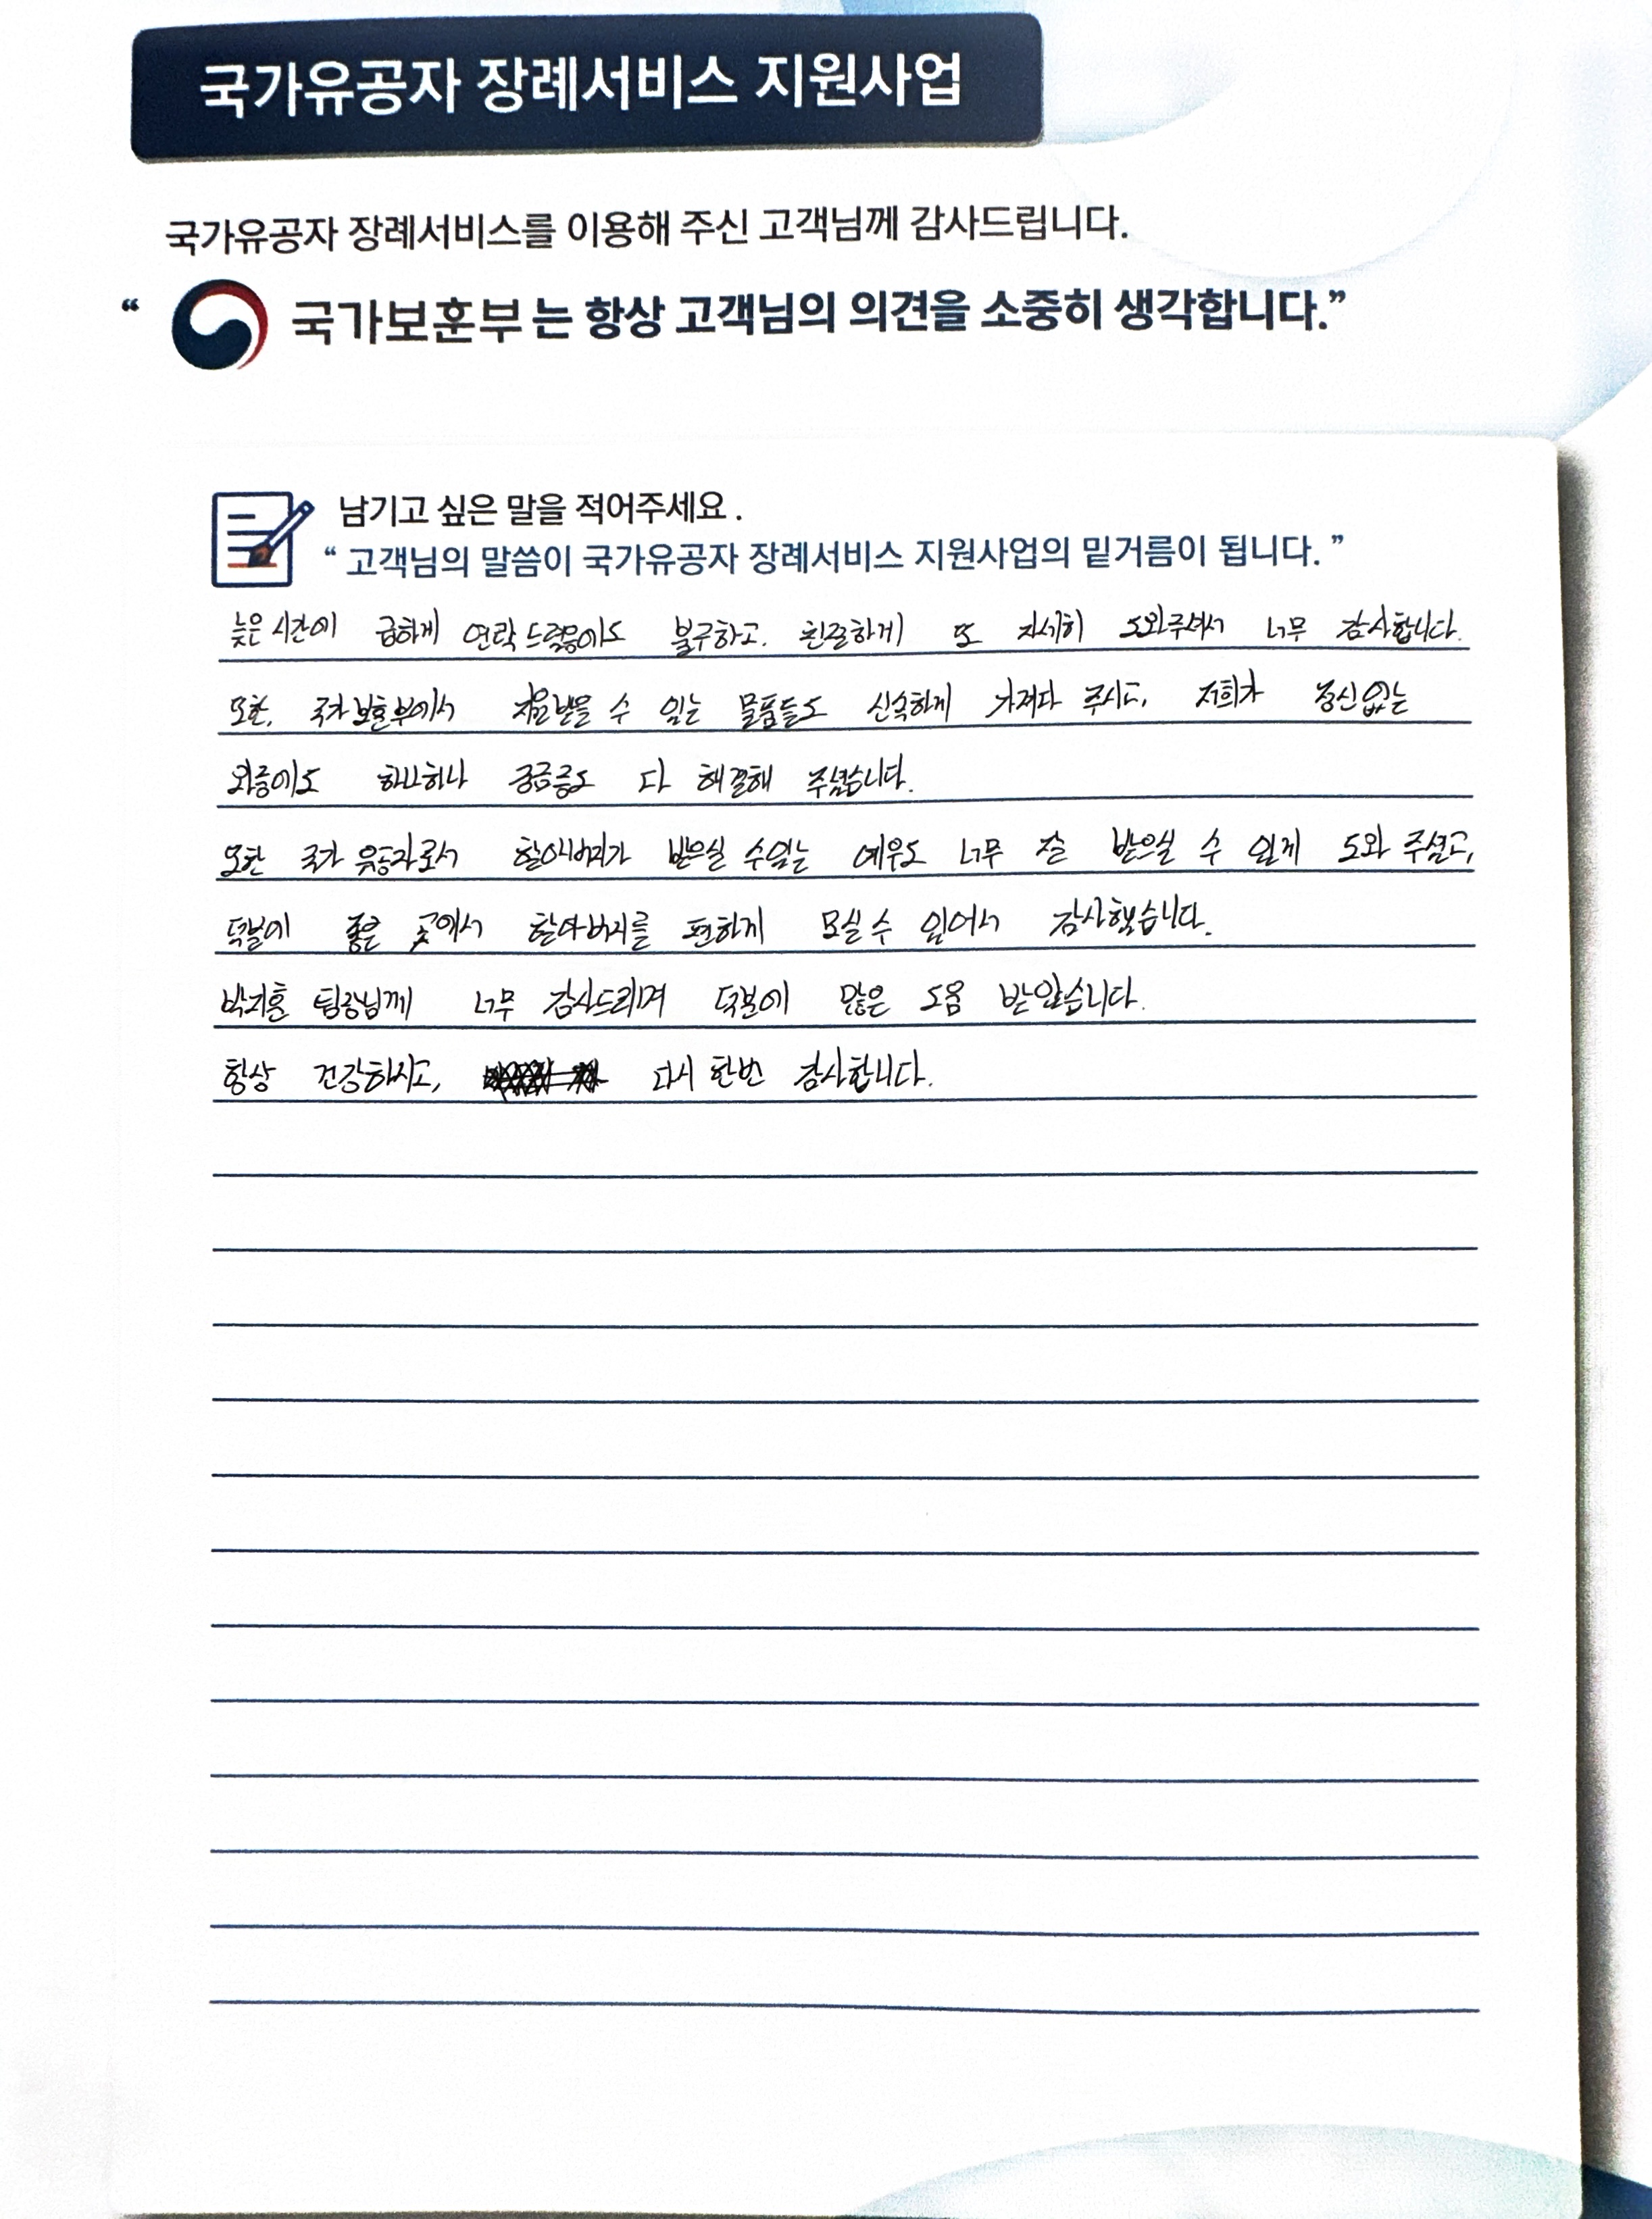 국가유공자 장례서비스 지원사업
국가유공자 장례서비스를 이용해 주신 고객님께 감사드립니다.
“ 국가보훈부 는 항상 고객님의 의견을 소중히 생각합니다.”
남기고 싶은 말을 적어주세요 .
“ 고객님의 말씀이 국가유공자 장례서비스 지원사업의 밑거름이 됩니다. ”
늦은 시간에 급하게 연락 드렸음에도 불구하고. 친절하게 또 자세히 도와주셔서 너무 감사합니다.
또한, 국가보훈부에서 지원받을 수 있는 물품들도 신속하게 가져다 주시고, 저희가 정신없는
와중에도 하나하나 궁금증도 다 해결해 주셨습니다.
또한 국가 유공자로서 할아버지가 받으실 수있는 예우도 너무 잘 받으실 수 있게 도와 주셨고,
덕분에 좋은 곳에서 할아버지를 편하게 모실 수 있어서 감사했습니다.
박지훈 팀장님께 너무 감사드리며 덕분에 많은 도움 받았습니다.
항상 건강하시고, 다시 한번 감사합니다.